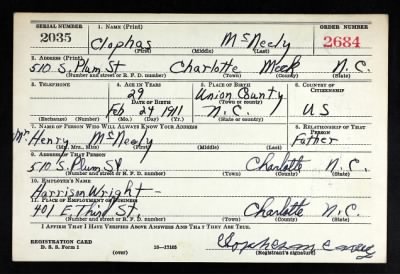 SERIAL NUMBER 1. NAME (Print) ORDER NUMBER
2035 Clophas McNeely 2684
(First) (Middle) (Last)
2. ADDRESS (Print)
510 S. Plum St Charlotte Meck N.C.
(Number and street or R. F. D. number) (Town) (County) (State)
3. TELEPHONE 4. AGE IN YEARS 5. PLACE OF BIRTH 6. COUNTRY OF CITIZENSHIP
29 Union County
DATE OF BIRTH (Town or county)
Feb 24 1911 N.C. US
(Exchange) (Number) (Mo.) (Day) (Yr.) (State or country)
7. NAME OF PERSON WHO WILL ALWAYS KNOW YOUR ADDRESS 8. RELATIONSHIP OF THAT PERSON
Mr Henry McNeely Father
(Mr., Mrs., Miss) (First) (Middle) (Last)
9. ADDRESS OF THAT PERSON
510 S. Plum St Charlotte N.C.
(Number and street or R. F. D. number) (Town) (County) (State)
10. EMPLOYER'S NAME
Harrison Wright -
11. PLACE OF EMPLOYMENT OR BUSINESS
401 E Third St Charlotte N.C.
(Number and street or R. F. D. number) (Town) (County) (State)
I AFFIRM THAT I HAVE VERIFIED ABOVE ANSWERS AND THAT THEY ARE TRUE.
REGISTRATION CARD
D. S. S. Form 1 16-17105
(over) (Registrant's signature)